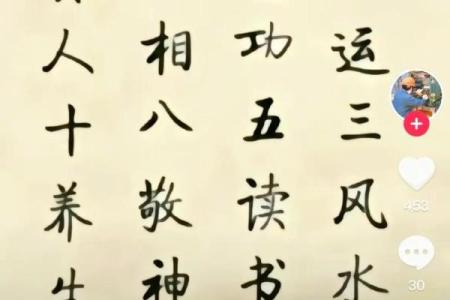 运三风水
功五读书
相八敬神
人十养生
453
30